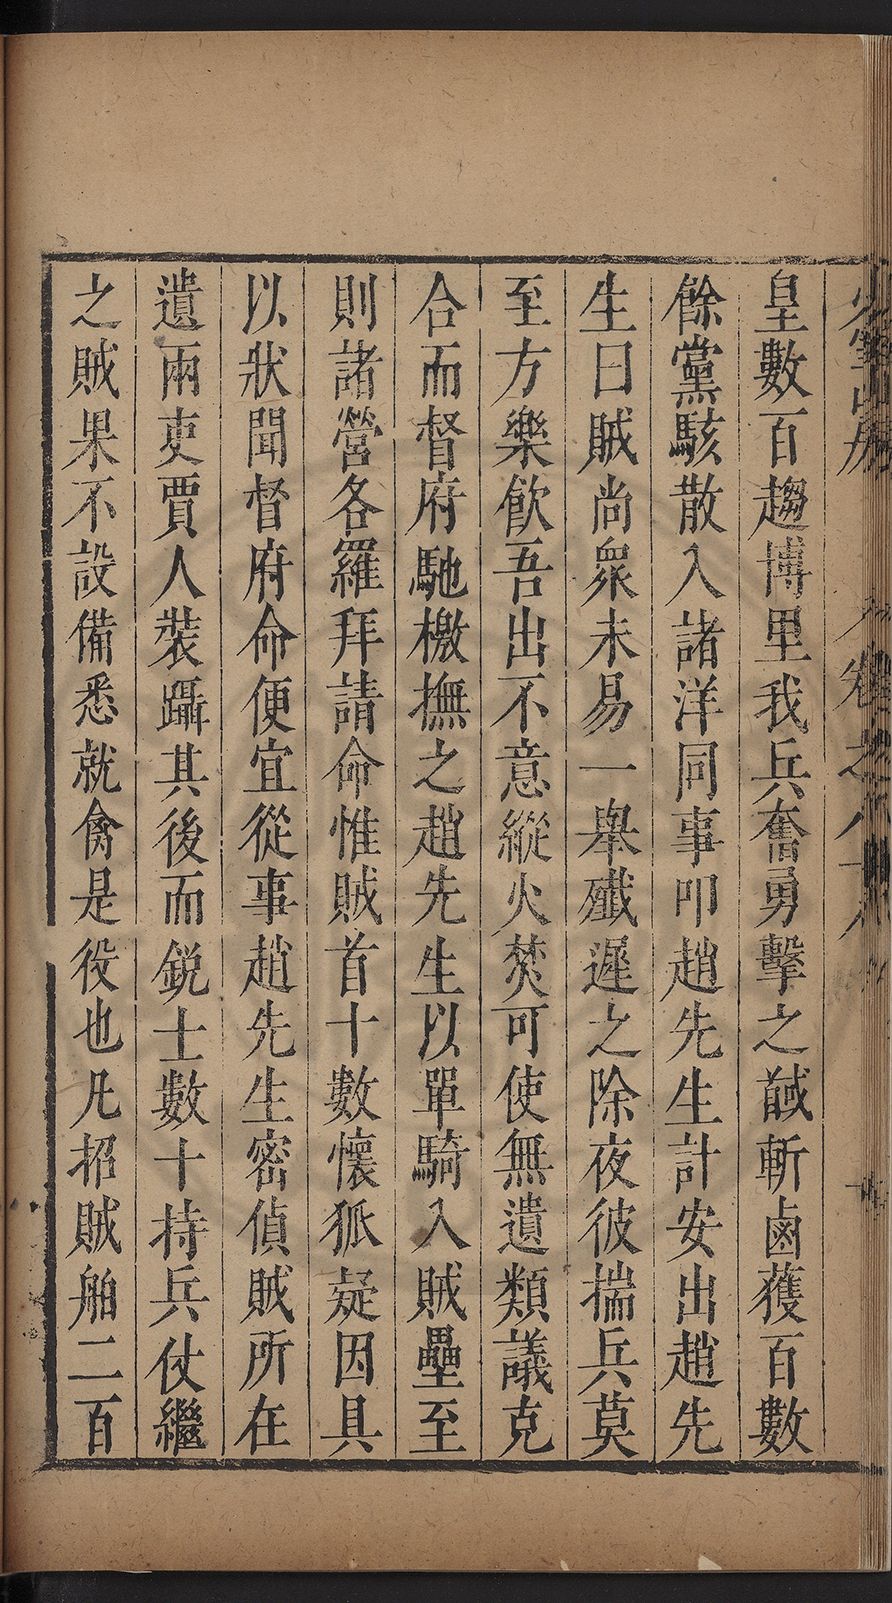 皇數百趨博里我兵奮勇擊之馘斬鹵獲百數
餘黨駭散入諸洋同事叩趙先生計安出趙先
生曰賊尚衆未易一舉殲遲之除夜彼揣兵莫
至方樂飲吾出不意縱火焚可使無遺類議克
合而督府馳檄撫之趙先生以單騎入賊壘至
則諸營各羅拜請命惟賊首十數懷狐疑因具
以狀聞督府命便宜從事趙先生密偵賊所在
遺兩吏賈人裝躡其後而銳士數十持兵仗繼
之賊果不設備悉就禽是役也凡招賊舶二百